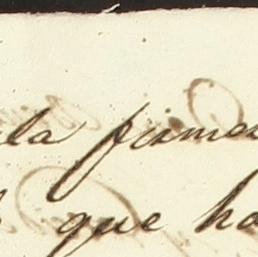 la firma
que ha